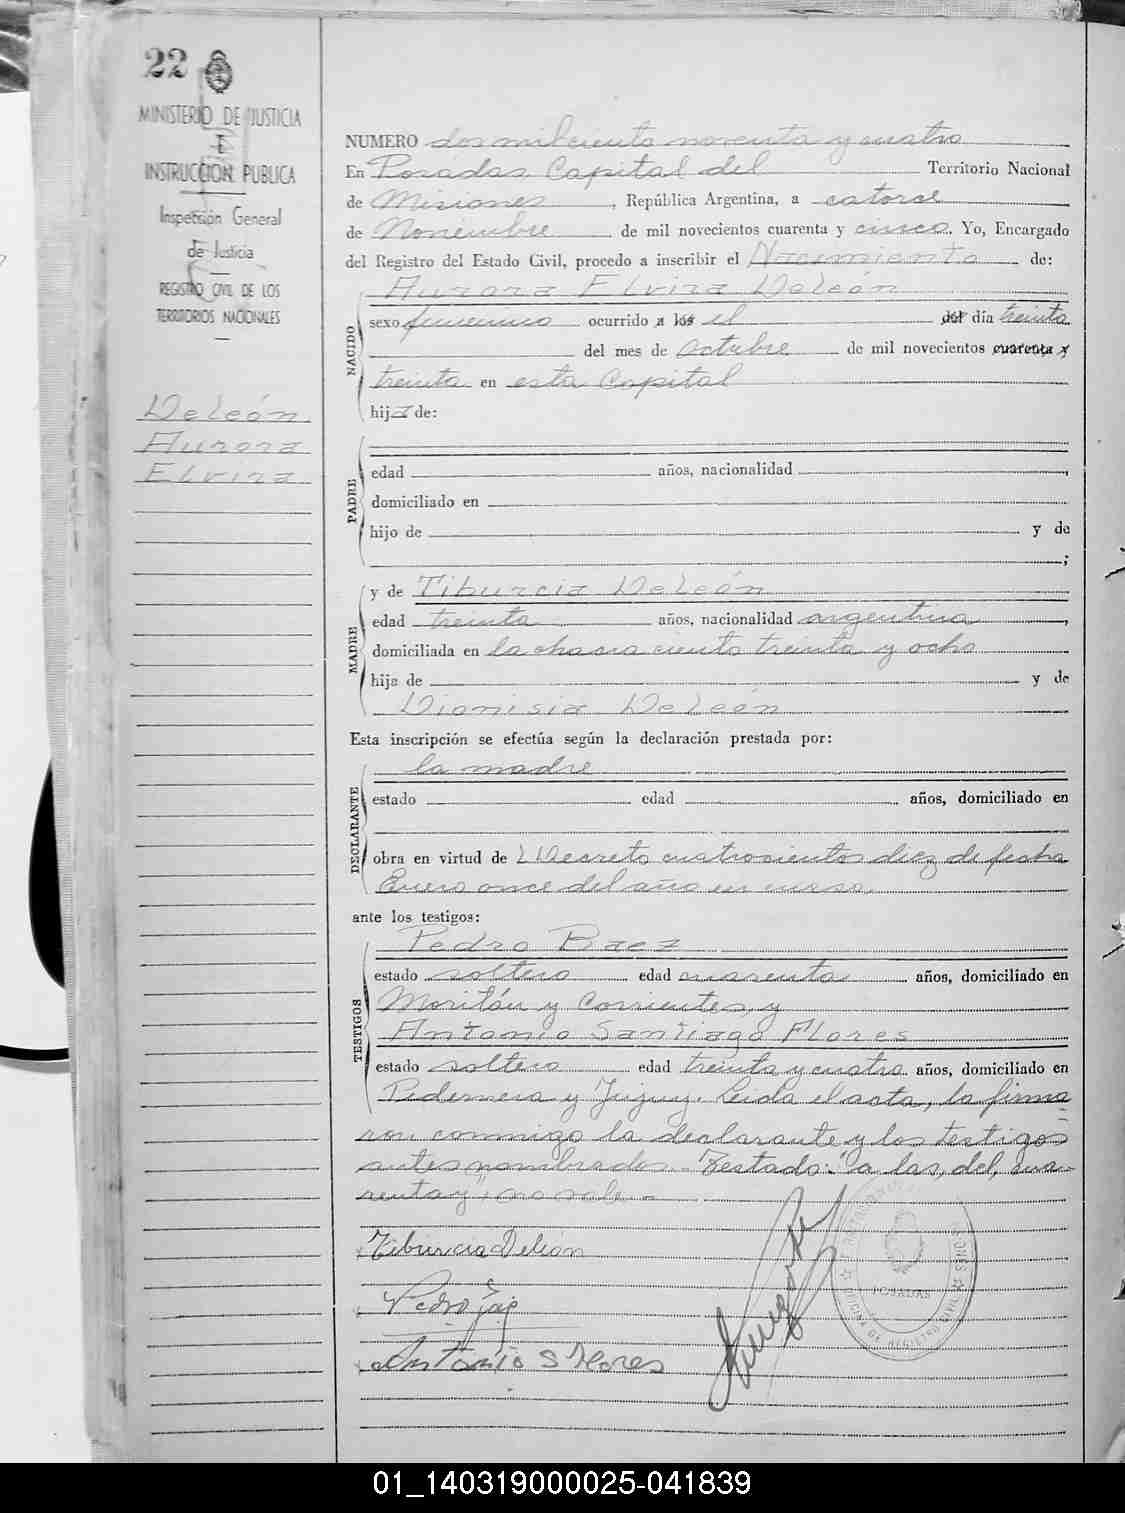 22
MINISTERIO DE JUSTICIA
E
INSTRUCCION PUBLICA
Inspección General
de Justicia
REGISTRO CIVIL DE LOS
TERRITORIOS NACIONALES
Deleón
Aurora
Elvira
NUMERO dos mil ciento noventa y cuatro
En Posadas Capital del Territorio Nacional
de Misiones, República Argentina, a catorce
de Noviembre de mil novecientos cuarenta y cinco. Yo, Encargado
del Registro del Estado Civil, procedo a inscribir el Nacimiento de:
Aurora Elvira Deleón
NACIDO
sexo femenino ocurrido a las el del día treinta
del mes de Octubre de mil novecientos cuarenta y
treinta en esta Capital
hija de:
PADRE
edad años, nacionalidad
domiciliado en
hijo de y de
;
MADRE
y de Tiburcia Deleón
edad treinta años, nacionalidad argentina,
domiciliada en la chacra ciento treinta y ocho
hija de y de
Dionisia Deleón
Esta inscripción se efectúa según la declaración prestada por:
la madre
DECLARANTE
estado edad años, domiciliado en
obra en virtud de Decreto cuatrocientos diez de fecha
Enero once del año en curso.
ante los testigos:
Pedro Baez
TESTIGOS
estado soltero edad cuarenta años, domiciliado en
y Corrientes, y
Antonio Santiago Flores
estado soltero edad treinta y cuatro años, domiciliado en
Pedernera y Jujuy. Leida el acta, la firma
ron conmigo la declarante y los testigos
antes nombrados.- Testado: "a las, del, cua-
renta y", no vale.-
Tiburcia Deleón
Pedro
Antonio S Flores
POSADAS
OFICINA DE REGISTRO CIVIL
01_140319000025-041839